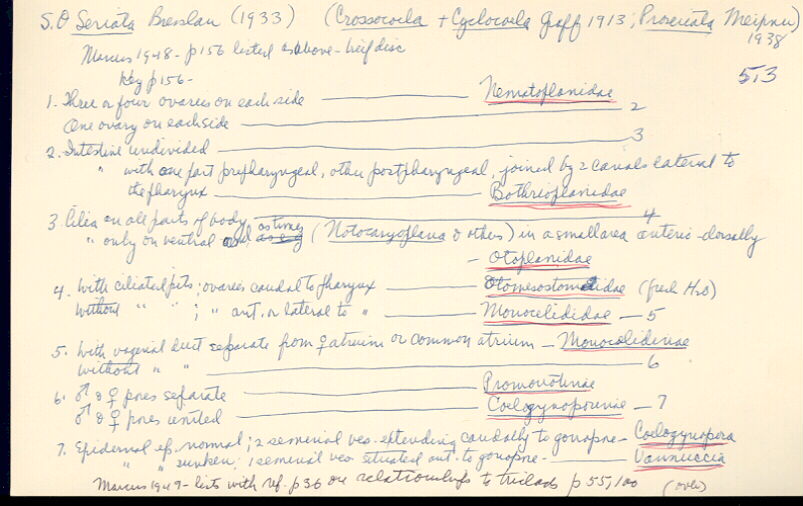 S.O Seriata Bresslau (1933) (Crossocoela + Cyclocoela Graff 1913; Proseriata Meixner)
1938
Marcus 1948 - p156 listed as above - brief disc
5,3
key p156 -
1. Three or four ovaries on each side — Nematoplanidae
One ovary on each side — 2
2. Intestine undivided — 3
" with one part prepharyngeal, other postpharyngeal, joined by 2 canals lateral to
the pharynx — Bothrioplanidae
3. Cilia on all parts of body — 4
" only on ventral and at times (Notocaryoplana & others) in a small area antero-dorsally
- Otoplanidae
4. With ciliated pits; ovaries caudal to pharynx — Otomesostomatidae (fresh H2O)
Without " " ; " ant. or lateral to " — Monocelididae — 5
5. With vaginal duct separate from ♀ atrium or common atrium — Monocelidinae
Without " " — 6
6. ♂ & ♀ pores separate — Promonotinae
♂ & ♀ pores united — Coelogynoporinae — 7
7. Epidermal ep. normal; 2 seminal ves. extending caudally to gonopore - Coelogynopora
" " sunken; 1 seminal ves situated ant. to gonopore - Vannuccia
Marcus 1949 - lists with ref. p36 on relationships to triclads p55,100 (over)